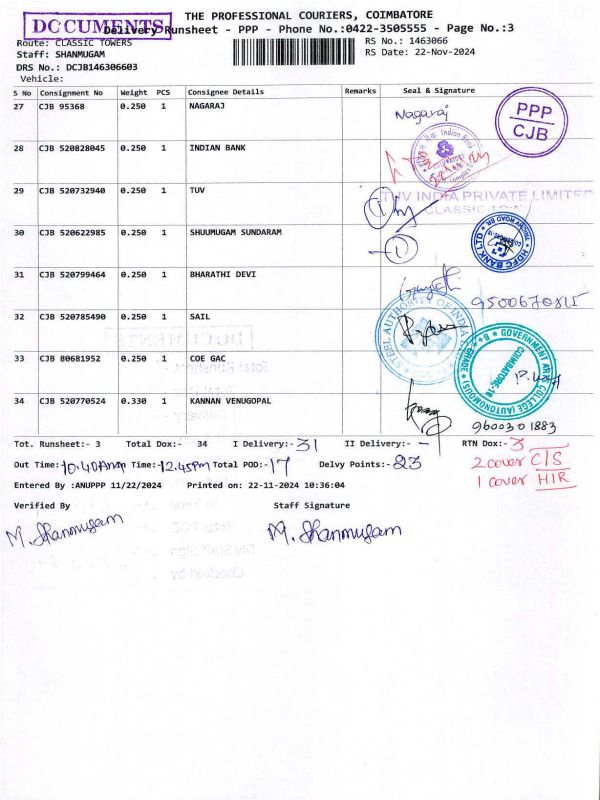 DOCUMENTS
THE PROFESSIONAL COURIERS, COIMBATORE
Delivery Runsheet - PPP - Phone No.:0422-3505555 - Page No.:3
Route: CLASSIC TOWERS
RS No.: 1463066
Staff: SHANMUGAM
RS Date: 22-Nov-2024
DRS No.: DCJB146306603
Vehicle:
S No Consignment No Weight PCS Consignee Details Remarks Seal & Signature
27 CJB 95368 0.250 1 NAGARAJ Nagaraj
PPP
CJB
28 CJB 520828045 0.250 1 INDIAN BANK
Indian Bank
29 CJB 520732940 0.250 1 TUV
TUV INDIA PRIVATE LIMITED
CLASSIC
30 CJB 520622985 0.250 1 SHUUMUGAM SUNDARAM
HDFC BANK LTD
31 CJB 520799464 0.250 1 BHARATHI DEVI
9500670815
32 CJB 520785490 0.250 1 SAIL
STEEL AUTHORITY OF INDIA
DOCUMENTS
33 CJB 80681952 0.250 1 COE GAC
GOVERNMENT ARTS COLLEGE (AUTONOMOUS)
COIMBATORE-18
34 CJB 520770524 0.330 1 KANNAN VENUGOPAL
9600301883
Tot. Runsheet:- 3 Total Dox:- 34 I Delivery:- 31 II Delivery:- - RTN Dox:- 3
Out Time:- 10.40Am In Time:- 12.45Pm Total POD:- 17 Delvy Points:- 23
2 cover C/S
1 cover HIR
Entered By :ANUPPP 11/22/2024 Printed on: 22-11-2024 10:36:04
Verified By Staff Signature
M. Shanmugam M. Shanmugam